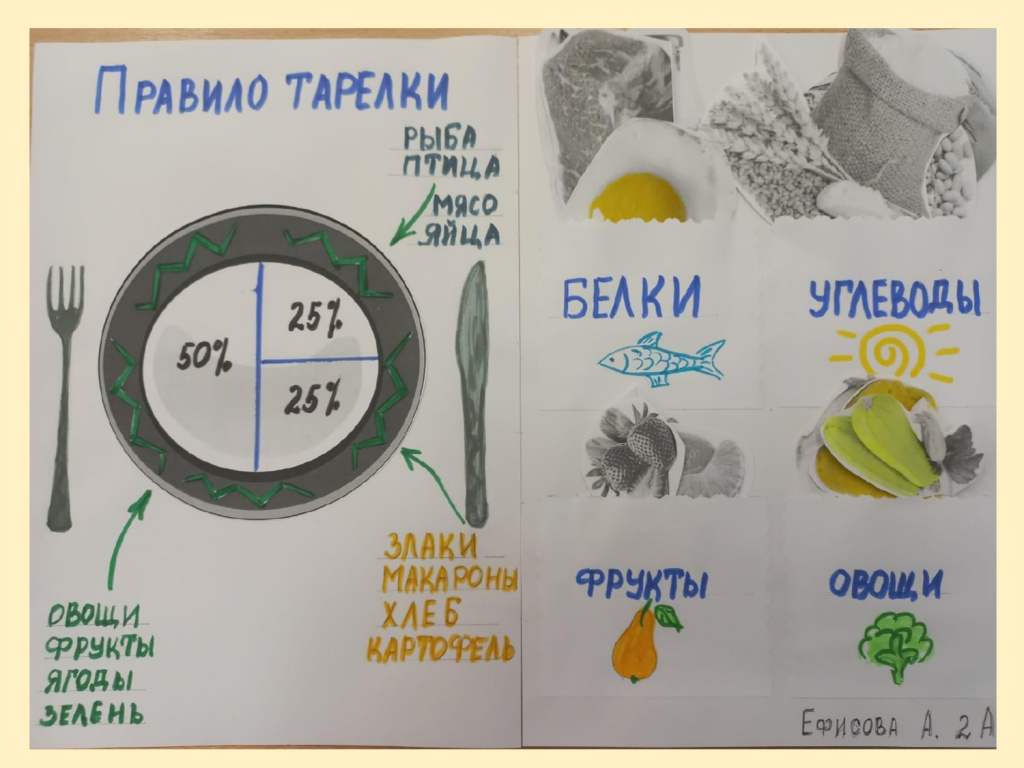 ПРАВИЛО ТАРЕЛКИ
РЫБА
ПТИЦА
МЯСО
ЯЙЦА
50%
25%
25%
ЗЛАКИ
МАКАРОНЫ
ХЛЕБ
КАРТОФЕЛЬ
ОВОЩИ
ФРУКТЫ
ЯГОДЫ
ЗЕЛЕНЬ
БЕЛКИ
УГЛЕВОДЫ
ФРУКТЫ
ОВОЩИ
ЕФИСОВА А. 2 А